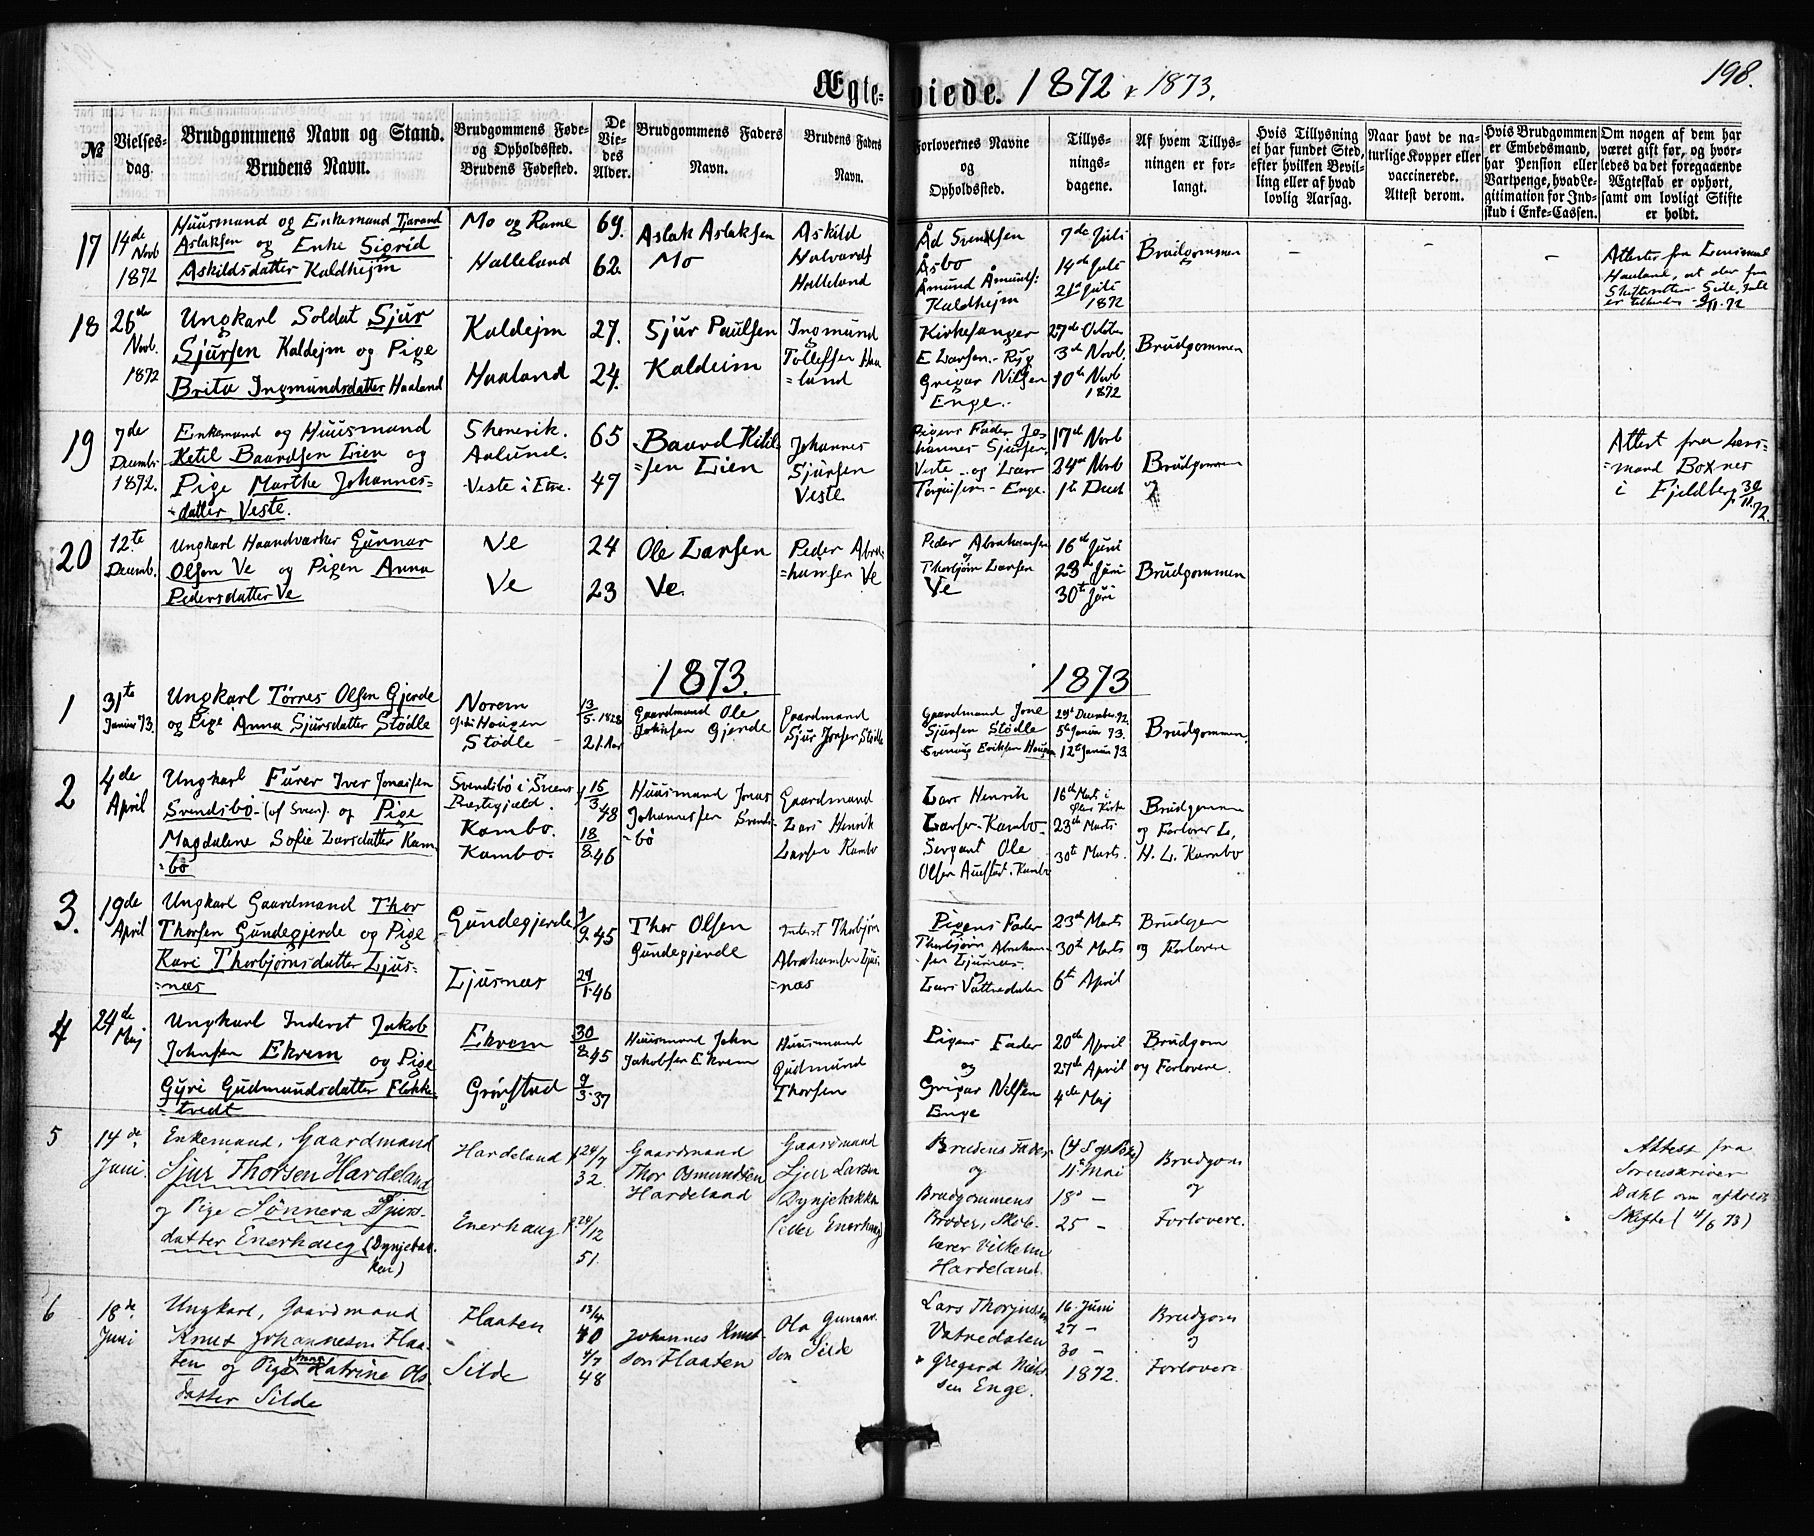 Ægteviede. 1872 & 1873.
198.
No
Vielses-
dag.
Brudgommens Navn og Stand.
Brudens Navn.
Brudgommens Føde-
og Opholdssted.
Brudens Fødested.
De
Vie-
des
Alder.
Brudgommens Faders
Navn.
Brudens Faders
Navn.
Forlovernes Navne
og
Opholdssted.
Tillys-
nings-
dagene.
Af hvem Tillys-
ningen er for-
langt.
Hvis Tillysning
ei har fundet Sted,
efter hvilken Bevil-
ling eller af hvad
lovlig Aarsag.
Naar havt de na-
turlige Kopper eller
vaccinerede.
Attest derom.
Hvis Brudgommen
er Embedsmand,
har Pension eller
Vartpenge, hvad Le-
gitimation for Ind-
skud i Enke-Cassen.
Om nogen af dem har
været gift før, og hvor-
ledes da det foregaaende
Ægteskab er ophørt,
samt om lovligt Skifte
er holdt.
17
14de
Novb
1872
Huusmand og Enkemand Tjerand
Aslaksen og Enke Sigrid
Askildsdatter Kaldhejm
Mo og
Halleland
69.
62.
Aslak Aslaksen
Mo
Askild
Halvards
Halleland
Åd Svendsen
Åsbo
Åmund Åmunds:
Kaldhejm
7de Juli
14de Juli
21de Juli
1872
Brudgommen
-
-
-
Attester fra
Haaland, at der fra
Skifterettens Side Intet
er tilhinder 9/11-72
18
26de
Novb.
1872
Ungkarl Soldat Sjur
Sjursen Kaldejm og Pige
Brita Ingmundsdatter Haaland
Kaldejm
Haaland
27.
24.
Sjur Paulsen
Kaldeim
Ingmund
Tollefsen Haa
=land
Kirkesanger
E Larsen - Ryg
Gregar Nilsen
Enge.-
27de Octber
3de Novb.
10de Novb
1872
Brudgommen
19
7de
Decmbr
1872.
Enkemand og Huusmand
Ketil Baardsen Lien og
Pige Marthe Johannes-
-datter Veste.
Skonevik.
Aalund.
Veste i Etne.
65
47
Baard Ketil-
=sen Lien
Johannes
Sjursen
Veste
Pigens Fader Jo-
hannes Sjursen
Veste - og Lars
Torgeirsen - Enge.
17de Novb
24de Novb
1ste Decb
Brudgommen
og
Attest fra Lens-
=mand Boxnes
i Fjeldberg 30/11.72.
20
12te
Decemb.
Ungkarl Haandværker Gunnar
Olsen Ve og Pigen Anna
Pedersdatter Ve
Ve
Ve
24
23
Ole Larsen
Ve.
Peder Abra-
=hamsen Ve
Peder Abrahamsen
og
Thorbjørn Larsen
Ve
16de Juni
23de Juni
30te Juni
Brudgommen
1873.
1873
1
31te
Januar 73.
Ungkarl Tørres Olsen Gjerde
og Pige Anna Sjursdatter Stødle
Norem
Haugen
Stødle
13/5.1828
21 Aar
Gaardmand Ole
Johnsen Gjerde
Gaardmand
Sjur Jonsen Stødle
Gaardmand Jone
Sjursen Stødle
Svenung Eriksen Haugen
29de December 72.
5te Januar 73.
12te Januar 73.
Brudgommen.
2
4de
April
Ungkarl Furer Iver Jonassen
Svendsbø - (af Sven). og Pige
Magdalene Sofie Larsdatter Kam-
-bø
Svendsbø i Sveens
Prestegjæld.
Kambo.
Kambo.
15/3 48
18/8.46
Huusmand Jonas
Johannessen Svends-
-bø
Gaardmand
Lars Henrik
Larsen Kambo
Lars Henrik
Larsen - Kambo -
Sergant Ole
Olsen Austad. Kambo
16de Marts i
Ølens Kirke
23de Marts
30te Marts.
Brudgommen
og Forlover L.
H. L. Kambo
3.
19de
April
Ungkarl Gaardmand Thor
Thorsen Gundegjerde og Pige
Kari Thorbjørnsdatter Ljus-
=næs
Gundegjerde
Ljusnæs
1/9.45
29/1.46
Thor Olsen
Gundegjerde
Inderst Thorbjørn
Abrahamsen Ljus-
=næs
Pigens Fader
Thorbjørn Abraham-
-sen Ljusnæs.
og
Lars Vattredalen
23de Marts
30te Marts
6te April
Brudgom
og Forlovere
4
24de
Maj
Ungkarl Inderst Jakob
Johnsen Ekrem og Pige
Gyri Gudmundsdatter Flokke-
-tvedt
Ekrem
Grønstad
30/8.45
9/3.37
Huusmand John
Jakobsen Ekrem
Huusmand
Gudmund
Thorsen
Pigens Fader
og
Gregar Nilsen
Enge
20de April
27de April
4de Maj
Brudgom
og Forlovere.
5
14de
Juni.
Enkemand, Gaardmand
Sjur Thorsen Hardeland
og Pige Sønneva Sjurs-
datter Enerhaug (Dynjebak-
ken)
Hardeland
Enerhaug
f. 24/7
32.
f. 24/12
51.
Gaardmand
Thor Osmundsen
Hardeland
Gaardmand
Sjur Larsen
Dynjebakka
Enerhaug)
Brudens Fader
og
Brudgommens
Broder, Skol-
lærer Vilhelm
Hardeland.
11te Mai
18 -
25 -
Brudgom
og
Forlovere.
Attest fra
Sorenskriver
Dahl om afholdt
Skifte (4/6 73)
6
18de
Juni
Ungkarl, Gaardmand
Knut Johannesen Flaa-
ten og Pige Anna Katrine Ols-
datter Silde
Flaaten
Silde
13/4
40
4/7
48
Johannes Knut-
son Flaaten
Ola Gunnar-
son Silde
Lars Thorjussen
Vatredalen
& Gregard Niels-
sen Enge.
16. Juni
27 -
30 -
1872.
Brudgom
og
Forlovere.